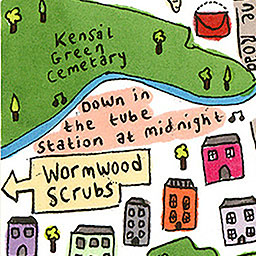 Kensal
Green
Cemetary
ne Road
Down in
the tube
station at midnight
Wormwood
Scrubs